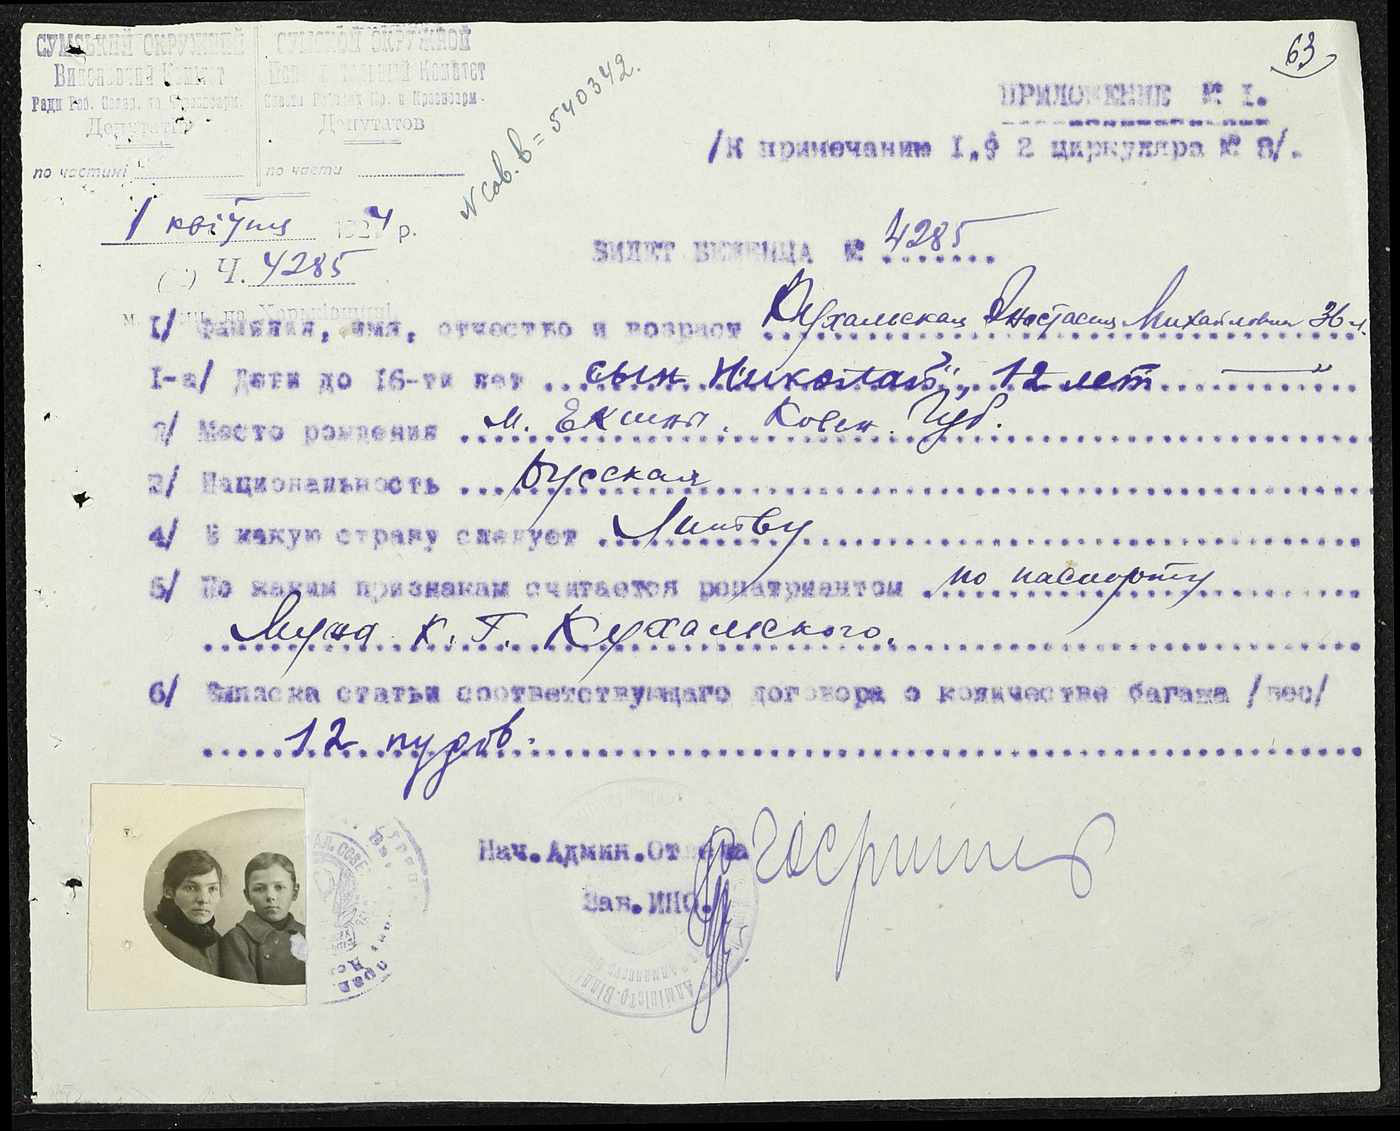 63
СУМСЬКИЙ ОКРУЖНИЙ
Виконавчий Комітет
Ради Роб. Селян. та Червоноарм.
Депутатів
по частині
СУМСКОЙ ОКРУЖНОЙ
Исполнительный Комитет
Совета Рабочих Кр. и Красноарм.
Депутатов
по части
N сов. В = 540342.
ПРИЛОЖЕНИЕ № I.
/К примечанию I, § 2 циркуляра № 8/.
1 квітня 1924 р.
Ч. 4285
на Харьківщині
БИЛЕТ БЕЖЕНЦА № 4285
I/ Фамилия, имя, отчество и возраст Кухальская Анастасия Михайловна 36 л.
I-а/ Дети до 16-ти лет сын Николай, 12 лет — "
2/ Место рождения м. Екшны. Ковен. Губ.
3/ Национальность Русская
4/ В какую страну следует Литву
5/ По каким признакам считается репатриантом по паспорту
Мужа К. Г. Кухальского.
6/ Выписка статьи соответствующаго договора о количестве багажа /вес/
12 пудов.
Нач. Админ. Отдела
Зав. ИНО.